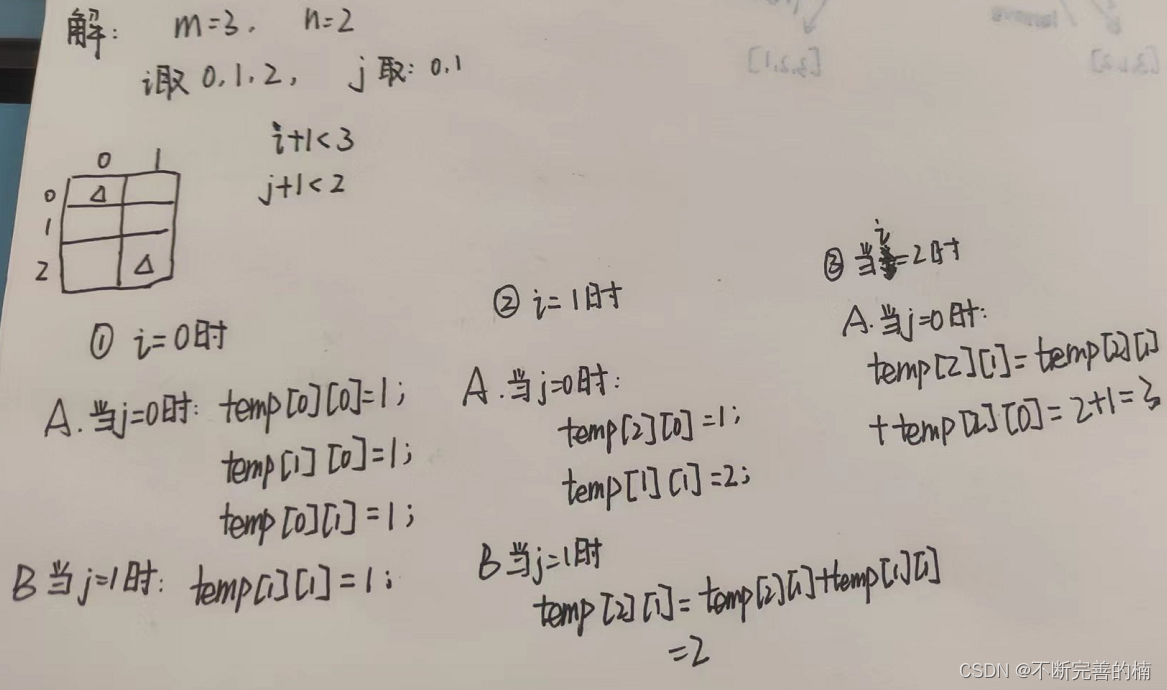 解： m=3, n=2
i取 0,1,2, j取：0,1
i+1<3
j+1<2
0 1
0 Δ
1
2 Δ
① i=0时
A.当j=0时： temp[0][0]=1;
temp[1][0]=1;
temp[0][1]=1;
B当j=1时： temp[1][1]=1;
② i=1时
A.当j=0时：
temp[2][0]=1;
temp[1][1]=2;
B当j=1时
temp[2][1]=temp[2][1]+temp[1][1]
=2
③ 当i=2时
A.当j=0时：
temp[2][1]=temp[2][1]
+temp[2][0]=2+1=3
[3,2,1]
CSDN @不断完善的楠